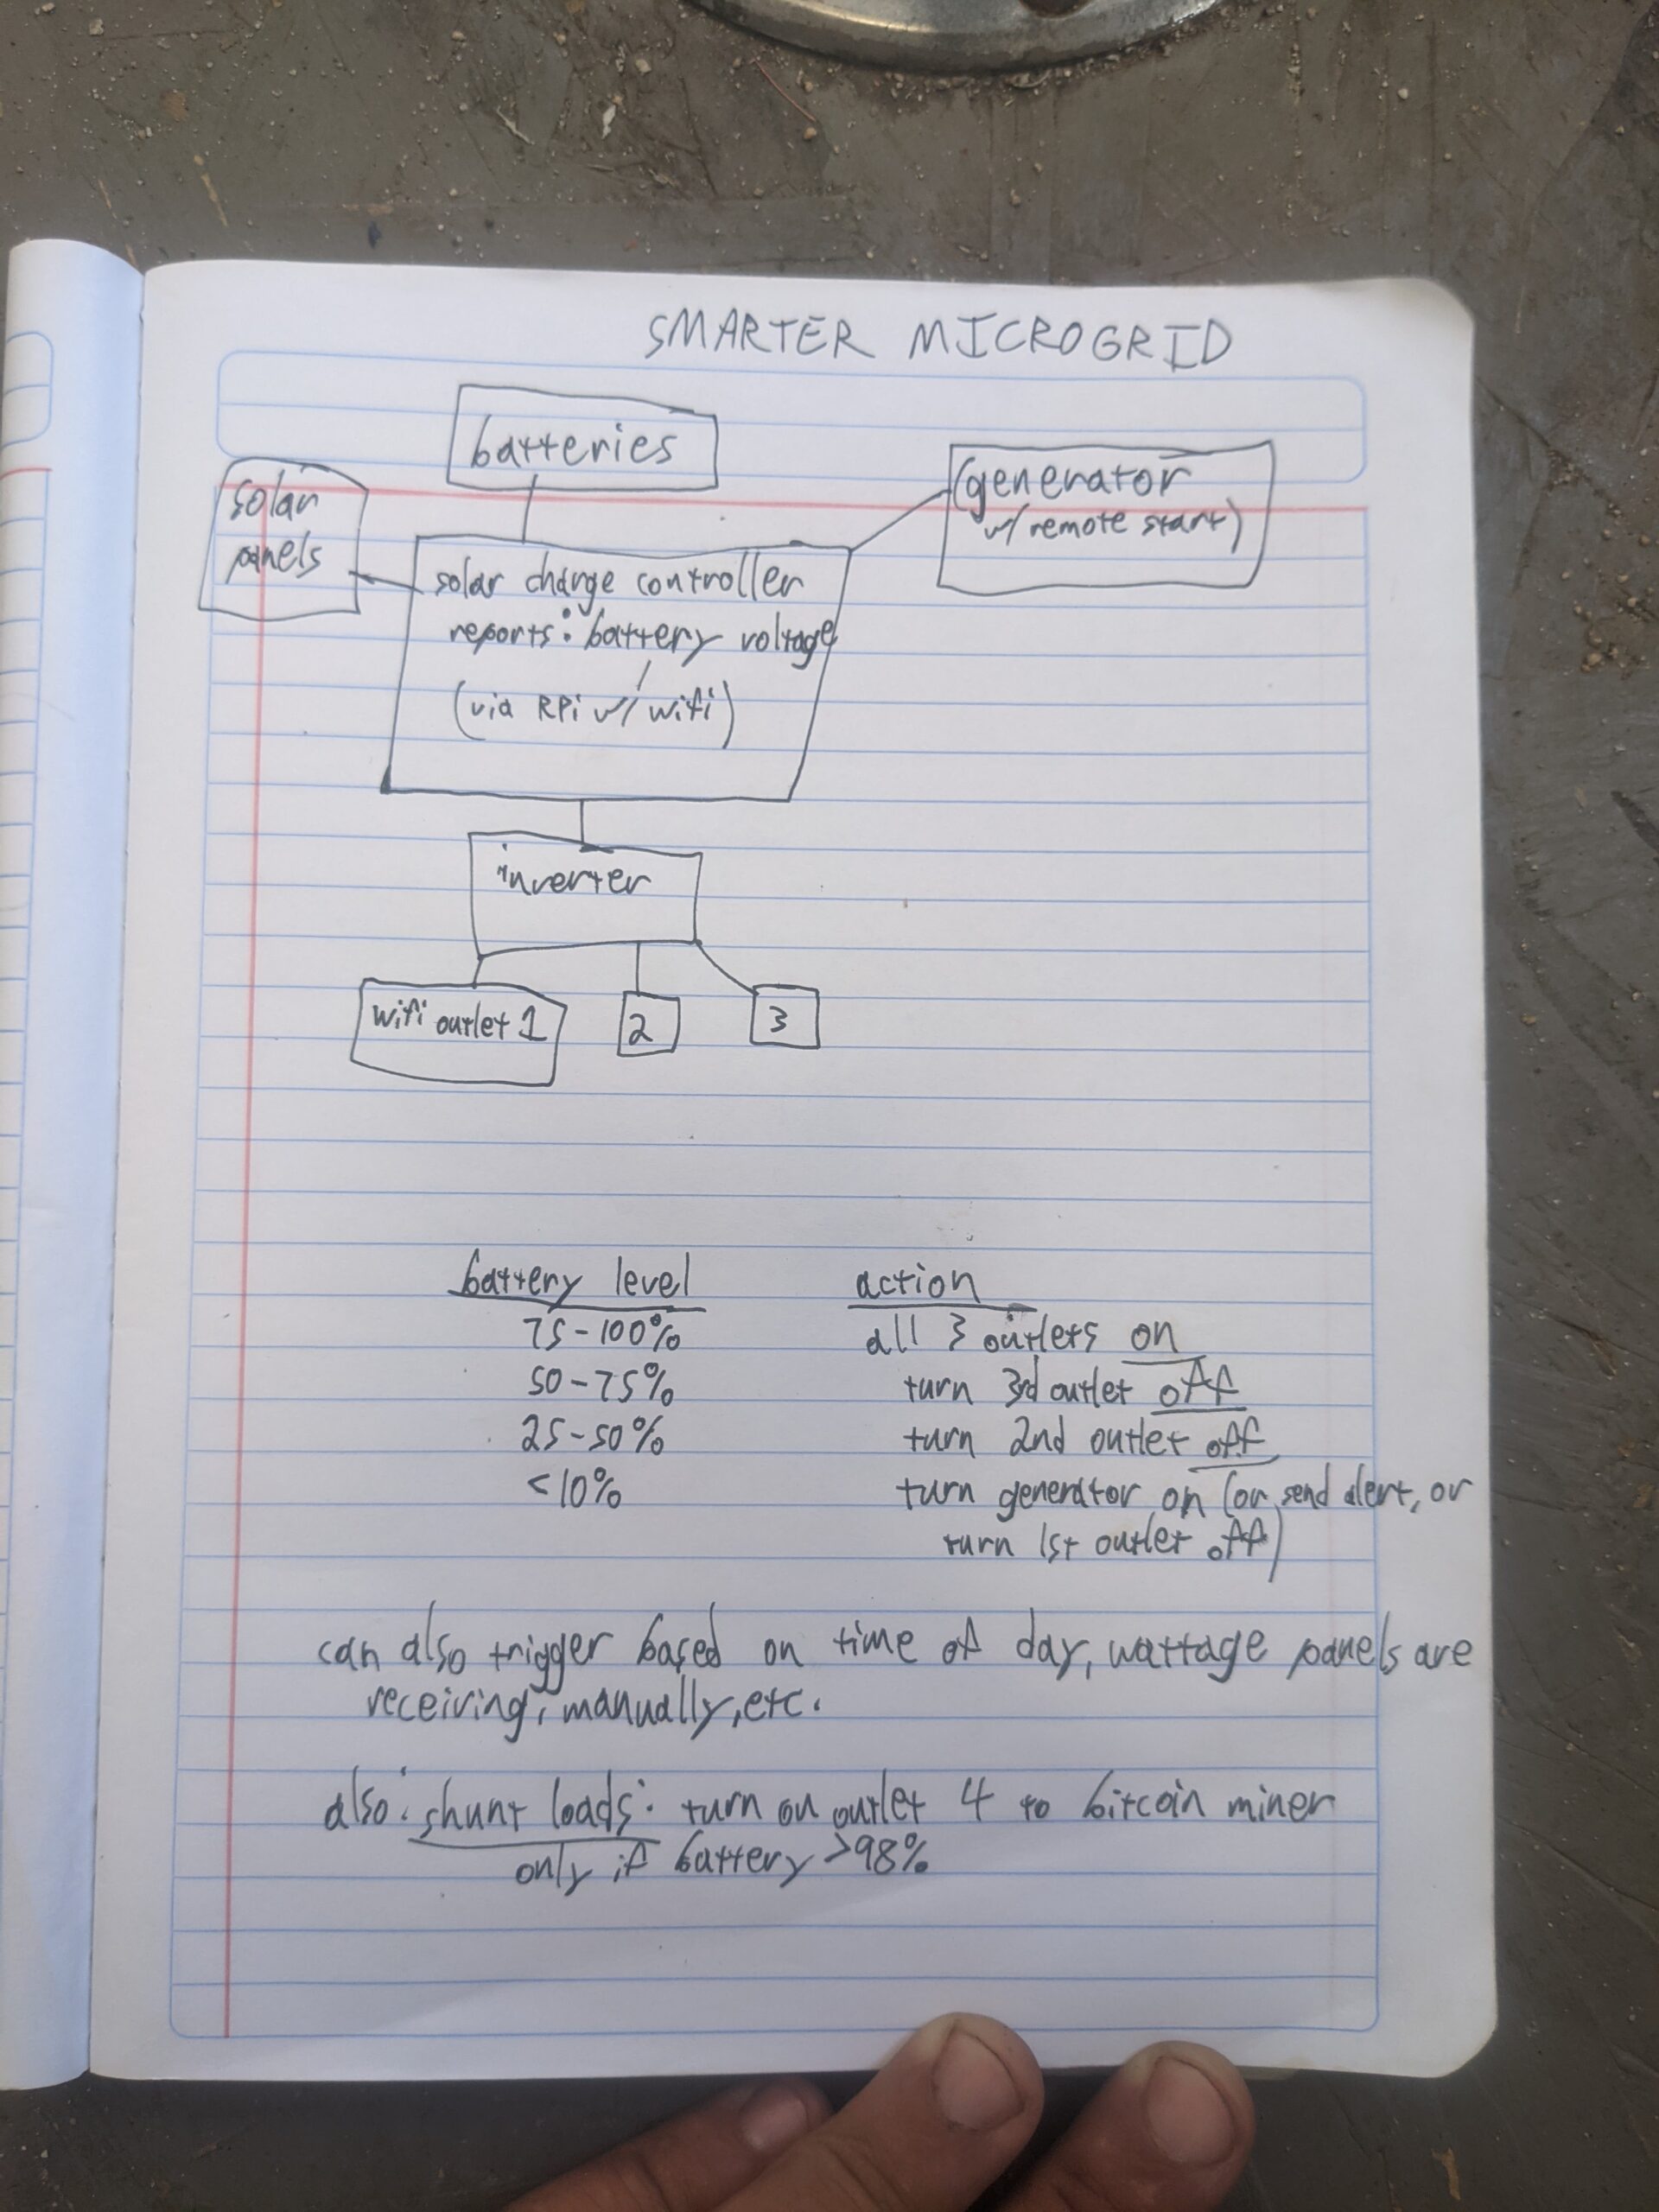 SMARTER MICROGRID
batteries
solar
panels
(generator
w/ remote start)
solar charge controller
reports: battery voltage
(via RPi w/ wifi)
inverter
wifi outlet 1
2
3
battery level action
75-100% all 3 outlets on
50-75% turn 3rd outlet off
25-50% turn 2nd outlet off
<10% turn generator on (or send alert, or
turn 1st outlet off)
can also trigger based on time of day, wattage panels are
receiving, manually, etc.
also: shunt loads: turn on outlet 4 to bitcoin miner
only if battery >98%